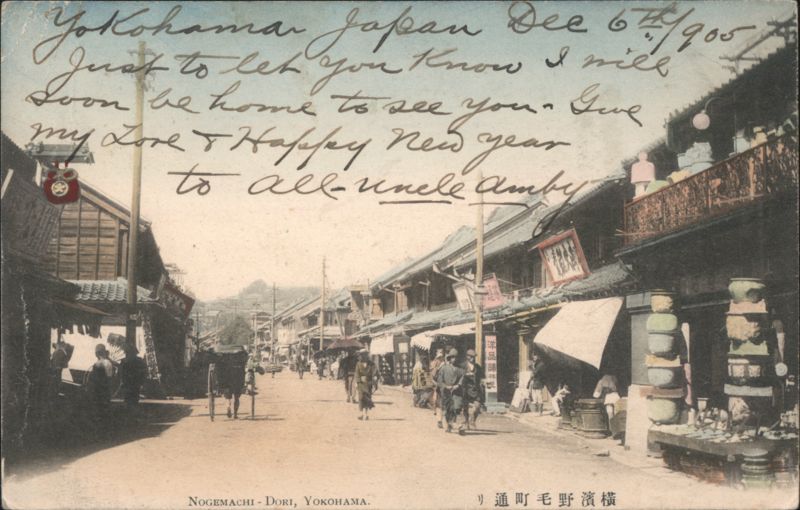 Yokohama Japan Dec 6th/905
Just to let you know I will
soon be home to see you - Give
my Love & Happy New year
to all - Uncle Amby
NOGEMACHI - DORI, YOKOHAMA.
リ通町毛野濱横